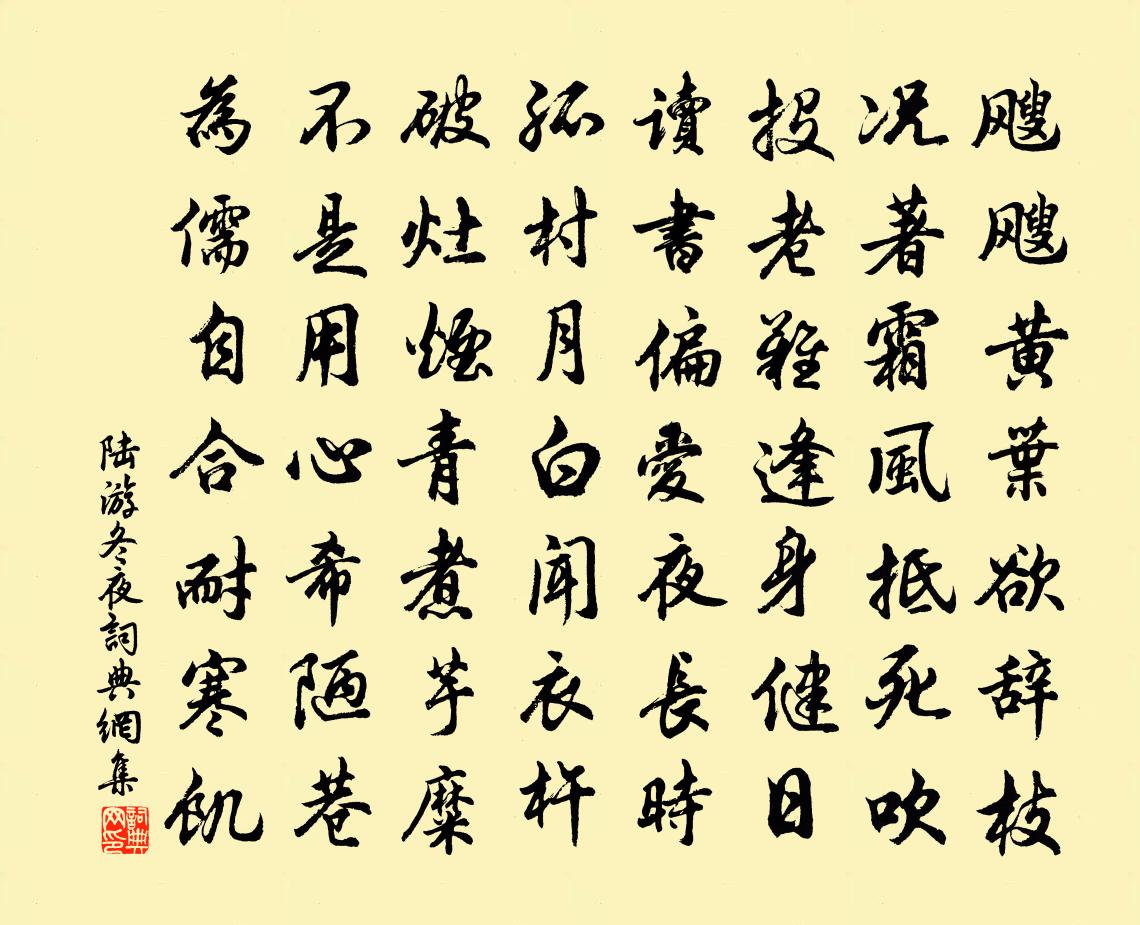 飕飕黄葉欲辞枝
况著霜風抵死吹
投老難逢身健日
讀書偏愛夜長時
孤村月白聞衣杵
破灶煙青煮芋糜
不是用心希陋巷
為儒自合耐寒飢
陆游冬夜詞典網集
詞典网印